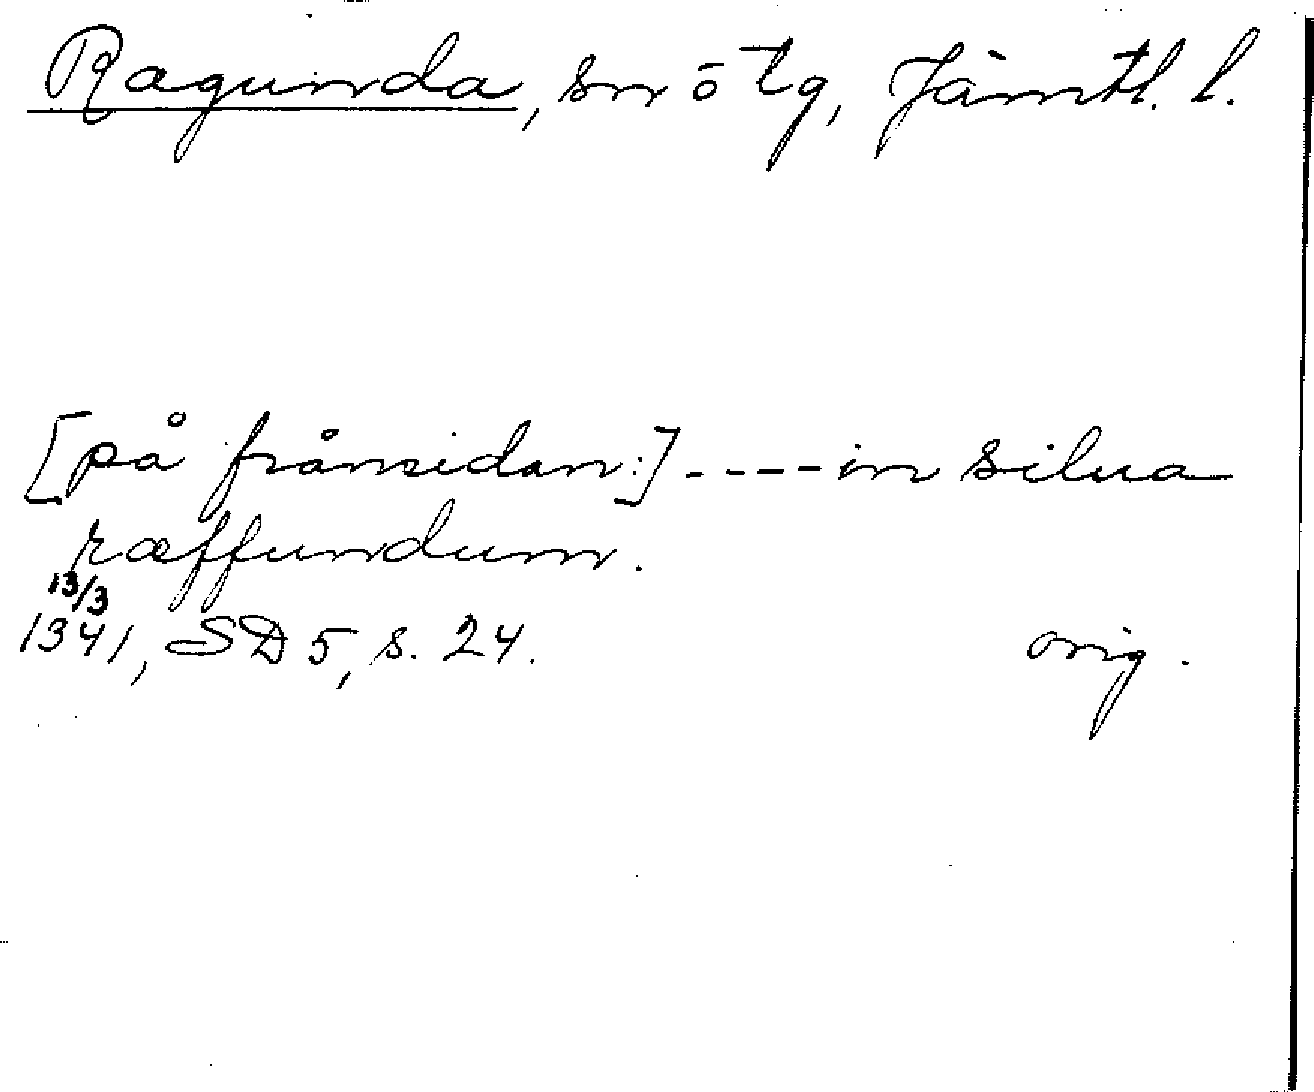 Ragunda, sn ö tg, Jämtl. l.
[på frånsidan:] ---- in silua
ræffundum.
13/3
1341, SD 5, s. 24. orig.